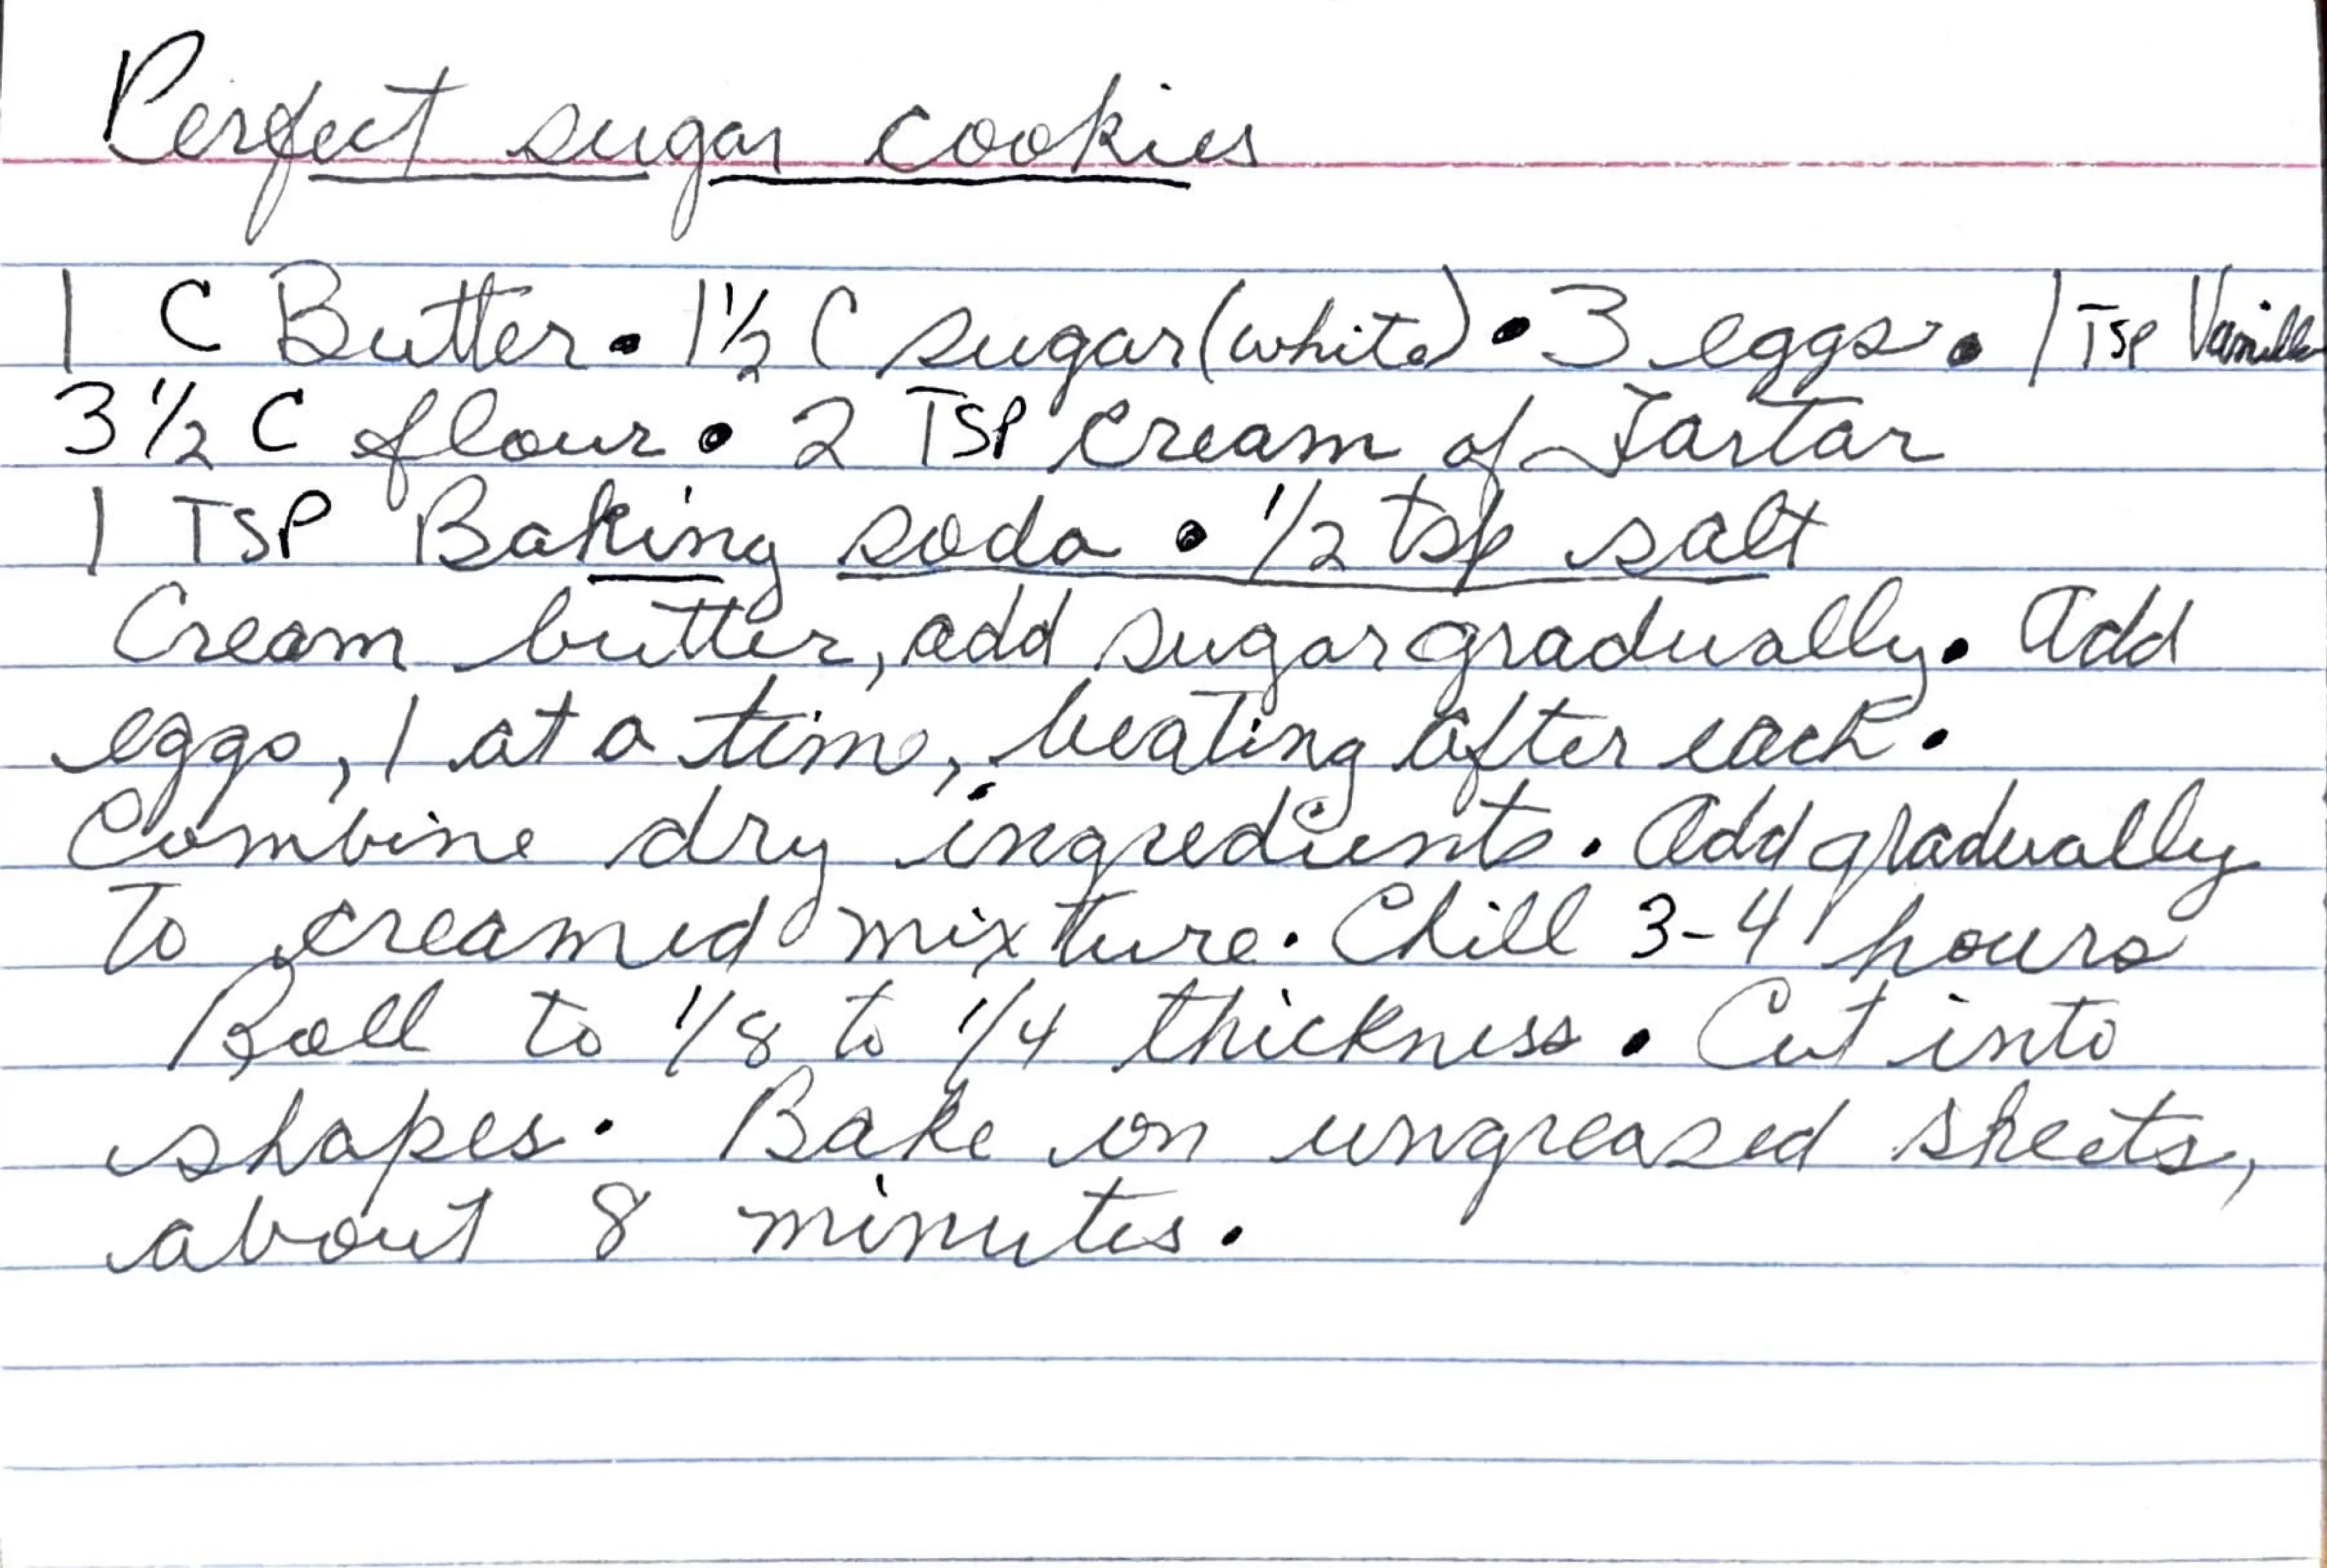 Perfect sugar cookies
1 C Butter • 1½ C sugar (white) • 3 eggs • 1 Tsp Vanilla
3 ½ C flour • 2 TSP Cream of Tartar
1 TSP Baking soda • 1/2 tsp salt
Cream butter, add sugar gradually. Add
eggs, 1 at a time, beating after each.
Combine dry ingredients. Add gradually
To creamed mixture. Chill 3-4 hours
Roll to 1/8 to 1/4 thickness. Cut into
shapes. Bake on ungreased sheets,
about 8 minutes.